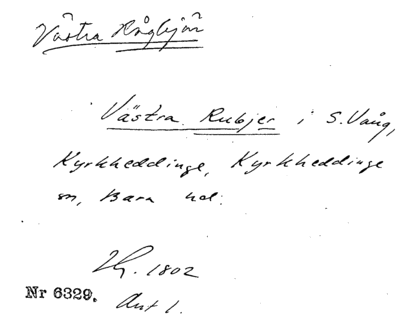 Västra Rågbjär
Västra Rubjer i S. Vång,
Kyrkheddinge, Kyrkheddinge
sn, Bara hd.
1802
Nr 6329. Akt 1.